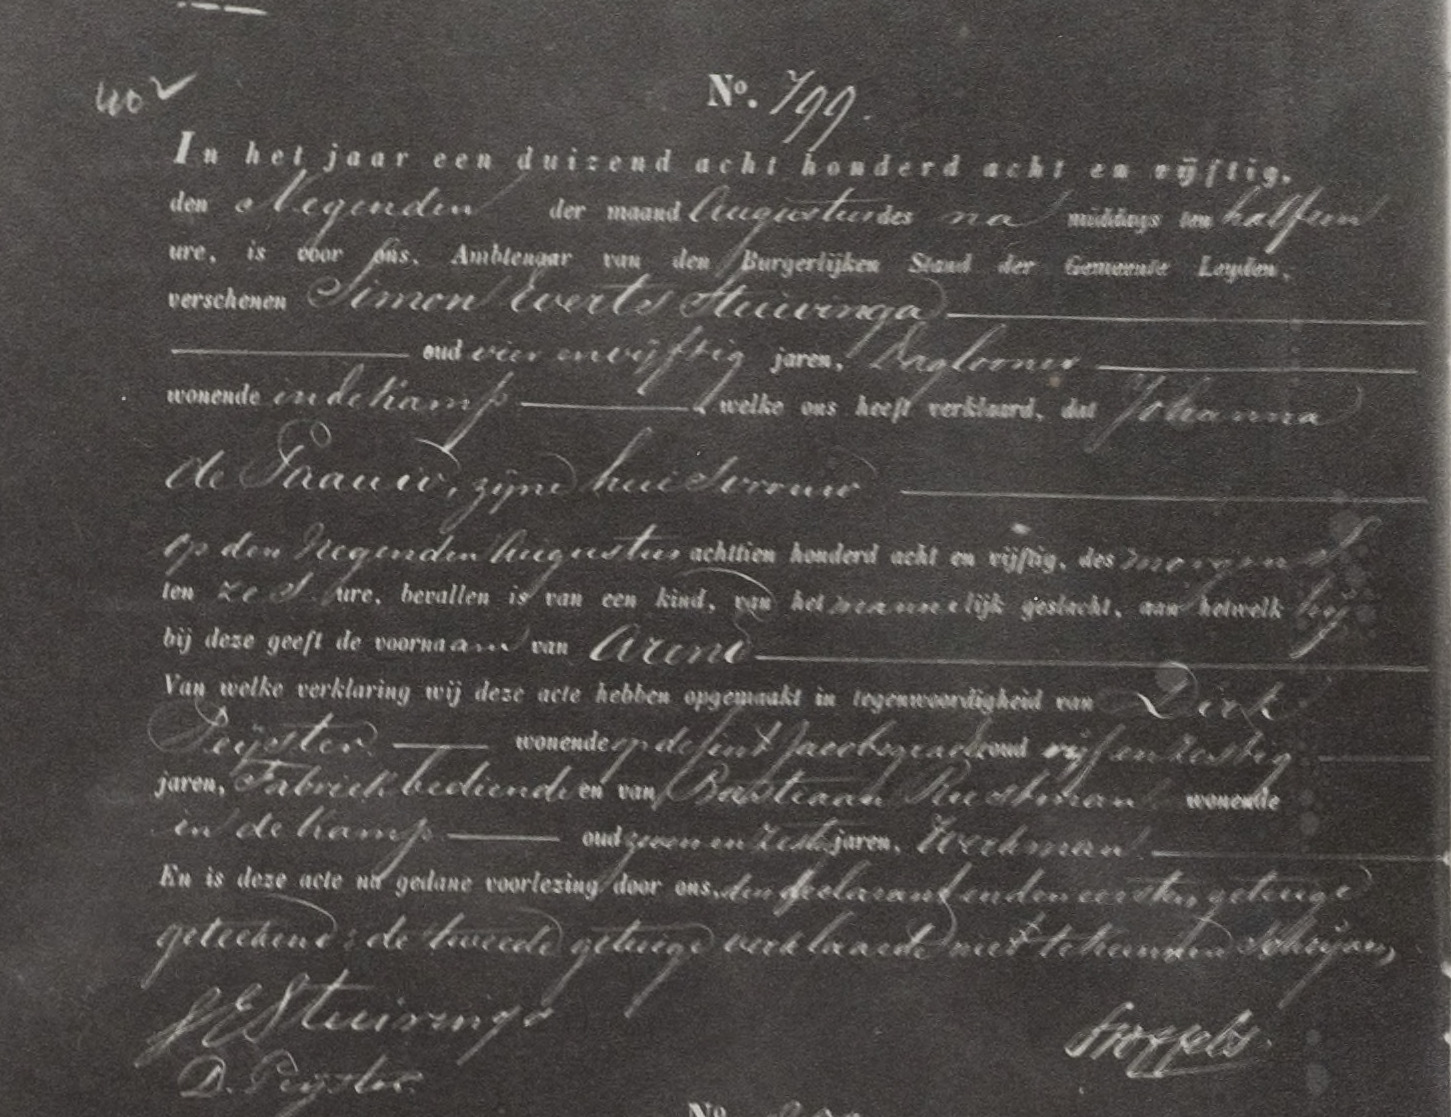 No. 799.
In het jaar een duizend acht honderd acht en vijftig,
den Negenden der maand Augustus des na middags ten half een
ure, is voor ons, Ambtenaar van den Burgerlijken Stand der Gemeente Leyden,
verschenen Simon Everts Stuivinga
oud vier en vijftig jaren, Daglooner
wonende in de Kamp, welke ons heeft verklaard, dat Johanna
de Paauw, zijne huisvrouw
op den Negenden Augustus achttien honderd acht en vijftig, des morgens
ten zes ure, bevallen is van een kind, van het mannelijk geslacht, aan hetwelk hij
bij deze geeft de voornaam van Arend
Van welke verklaring wij deze acte hebben opgemaakt in tegenwoordigheid van Dirk
Peijster wonende op de Sint Jacobsgracht oud vijf en zestig
jaren, Fabriek bediende en van Bastiaan wonende
in de Kamp oud zeven en zestig jaren, Werkman
En is deze acte na gedane voorlezing door ons, den declarant en den eersten getuige
geteekend; de tweede getuige verklaarde niet te kunnen schrijven,
S E Stuivinga
D. Peijster
No.